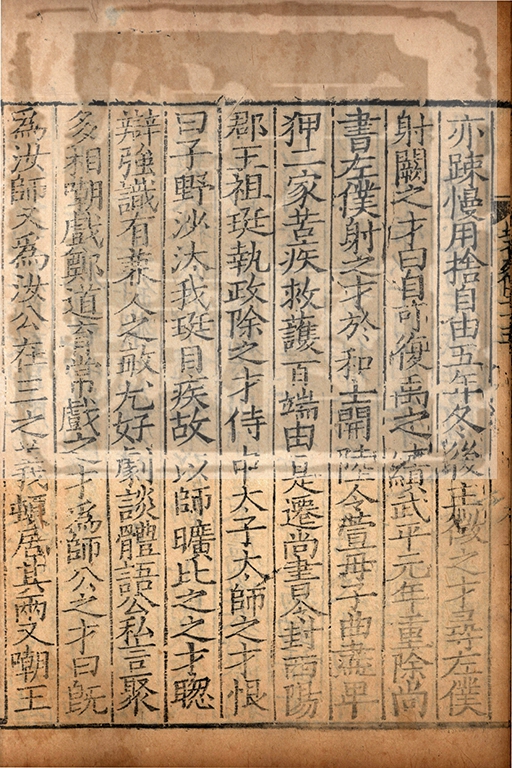 亦踈慢用捨自由五年冬後主徵之才尋左僕
射闕之才曰自可復禹之績武平元年重除尚
書左僕射之才於和士開陸令萱母子曲盡卑
狎二家苦疾救護百端由是遷尚書令封西陽
郡王祖珽執政除之才侍中太子太師之才恨
曰子野沙汰我珽目疾故以師曠比之之才聦
辯強識有兼人之敏尤好劇談體語公私言聚
多相嘲戲鄭道育常戲之才爲師公之才曰旣
爲汝師又爲汝公在三之義頓居其兩又嘲王